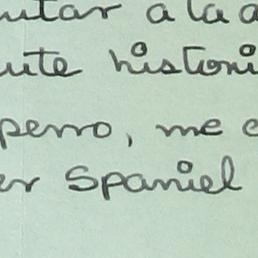 utar a la a
ute histori
perro, me e
er Spaniel